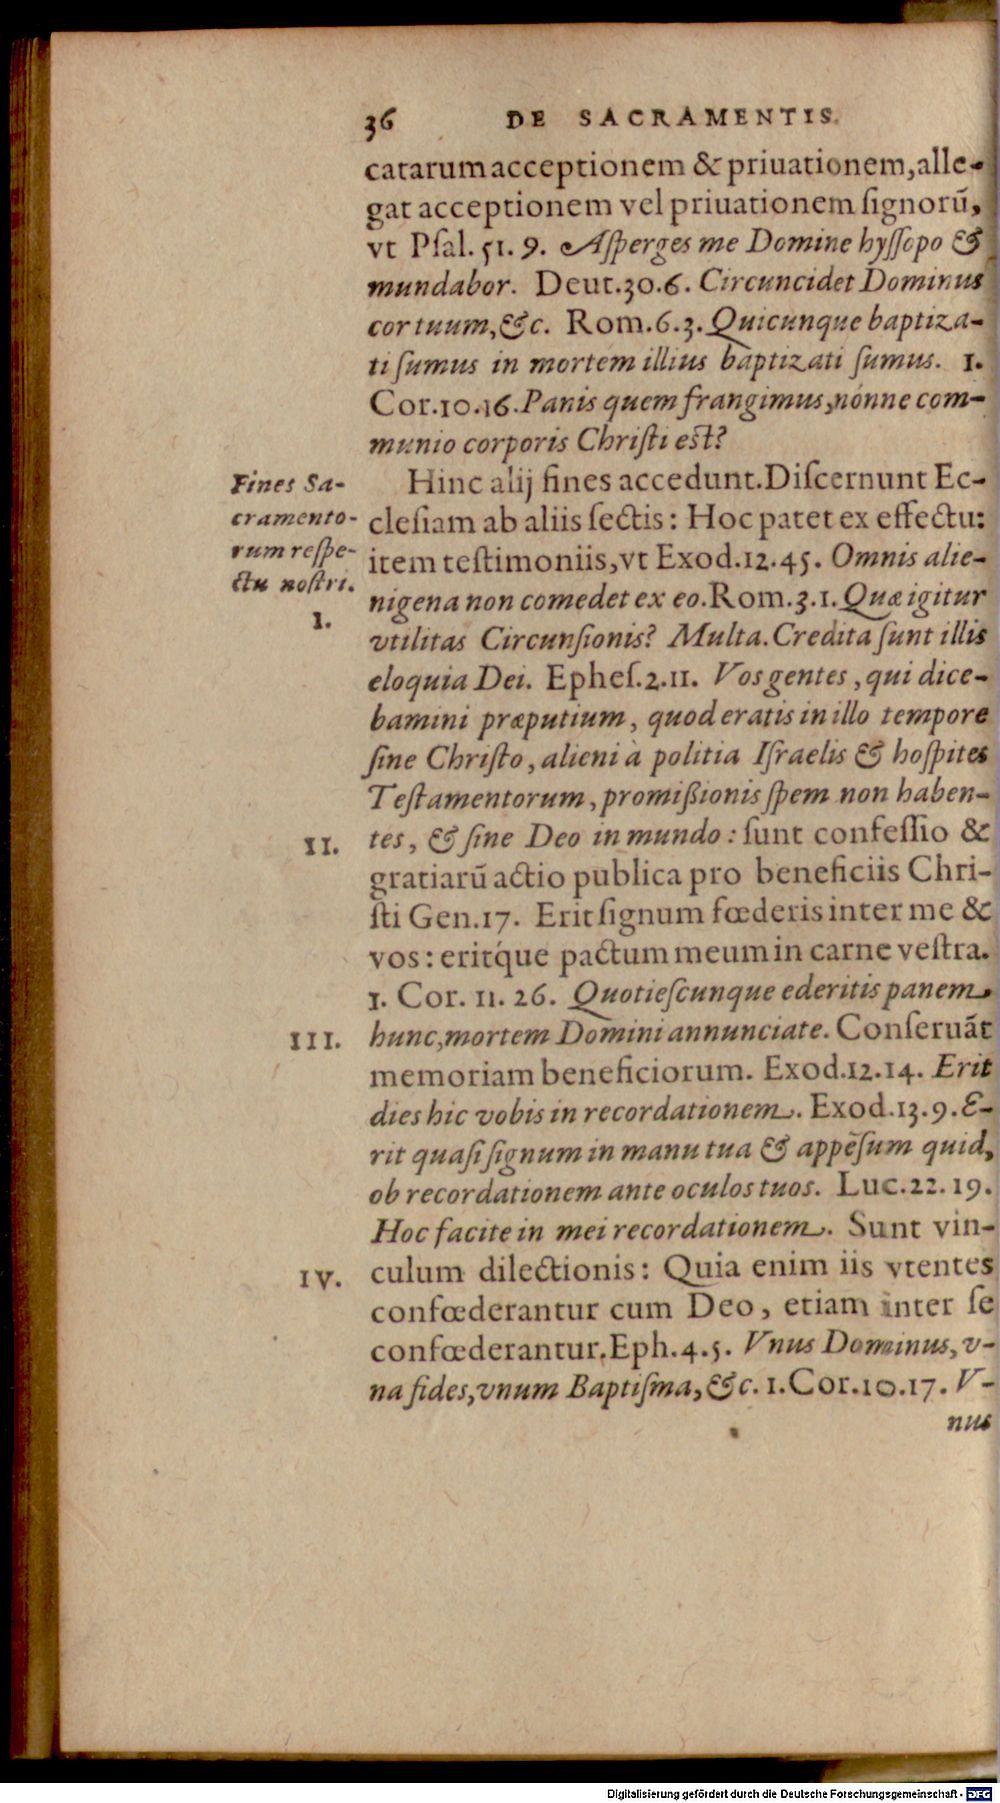 36 DE SACRAMENTIS.
catarum acceptionem & priuationem, alle-
gat acceptionem vel priuationem ſignorū,
vt Pſal. 51. 9. Aſperges me Domine hyſſopo &
mundabor. Deut. 30. 6. Circuncidet Dominus
cor tuum, &c. Rom. 6. 3. Quicunque baptiza-
ti ſumus in mortem illius baptizati ſumus. 1.
Cor. 10. 16. Panis quem frangimus, nónne com-
munio corporis Chriſti eſt?
Fines Sa-
cramento-
rum reſpe-
ctu noſtri.
I.
Hinc alij fines accedunt. Diſcernunt Ec-
cleſiam ab aliis ſectis: Hoc patet ex effectu:
item teſtimoniis, vt Exod. 12. 45. Omnis alie-
nigena non comedet ex eo. Rom. 3. 1. Quæ igitur
vtilitas Circunſionis? Multa. Credita ſunt illis
eloquia Dei. Epheſ. 2. 11. Vos gentes, qui dice-
bamini præputium, quod eratis in illo tempore
ſine Chriſto, alieni à politia Iſraelis & hoſpites
Teſtamentorum, promißionis ſpem non haben-
II.
tes, & ſine Deo in mundo: ſunt confeſſio &
gratiarū actio publica pro beneficiis Chri-
ſti Gen. 17. Erit ſignum fœderis inter me &
vos: eritq́ue pactum meum in carne veſtra.
1. Cor. 11. 26. Quotieſcunque ederitis panem
III.
hunc, mortem Domini annunciate. Conſeruāt
memoriam beneficiorum. Exod. 12. 14. Erit
dies hic vobis in recordationem. Exod. 13. 9. E-
rit quaſi ſignum in manu tua & appēſum quid,
ob recordationem ante oculos tuos. Luc. 22. 19.
Hoc facite in mei recordationem. Sunt vin-
IV.
culum dilectionis: Quia enim iis vtentes
confœderantur cum Deo, etiam inter ſe
confœderantur. Eph. 4. 5. Vnus Dominus, v-
na fides, vnum Baptiſma, &c. 1. Cor. 10. 17. V-
nus
Digitalisierung gefördert durch die Deutsche Forschungsgemeinschaft - DFG